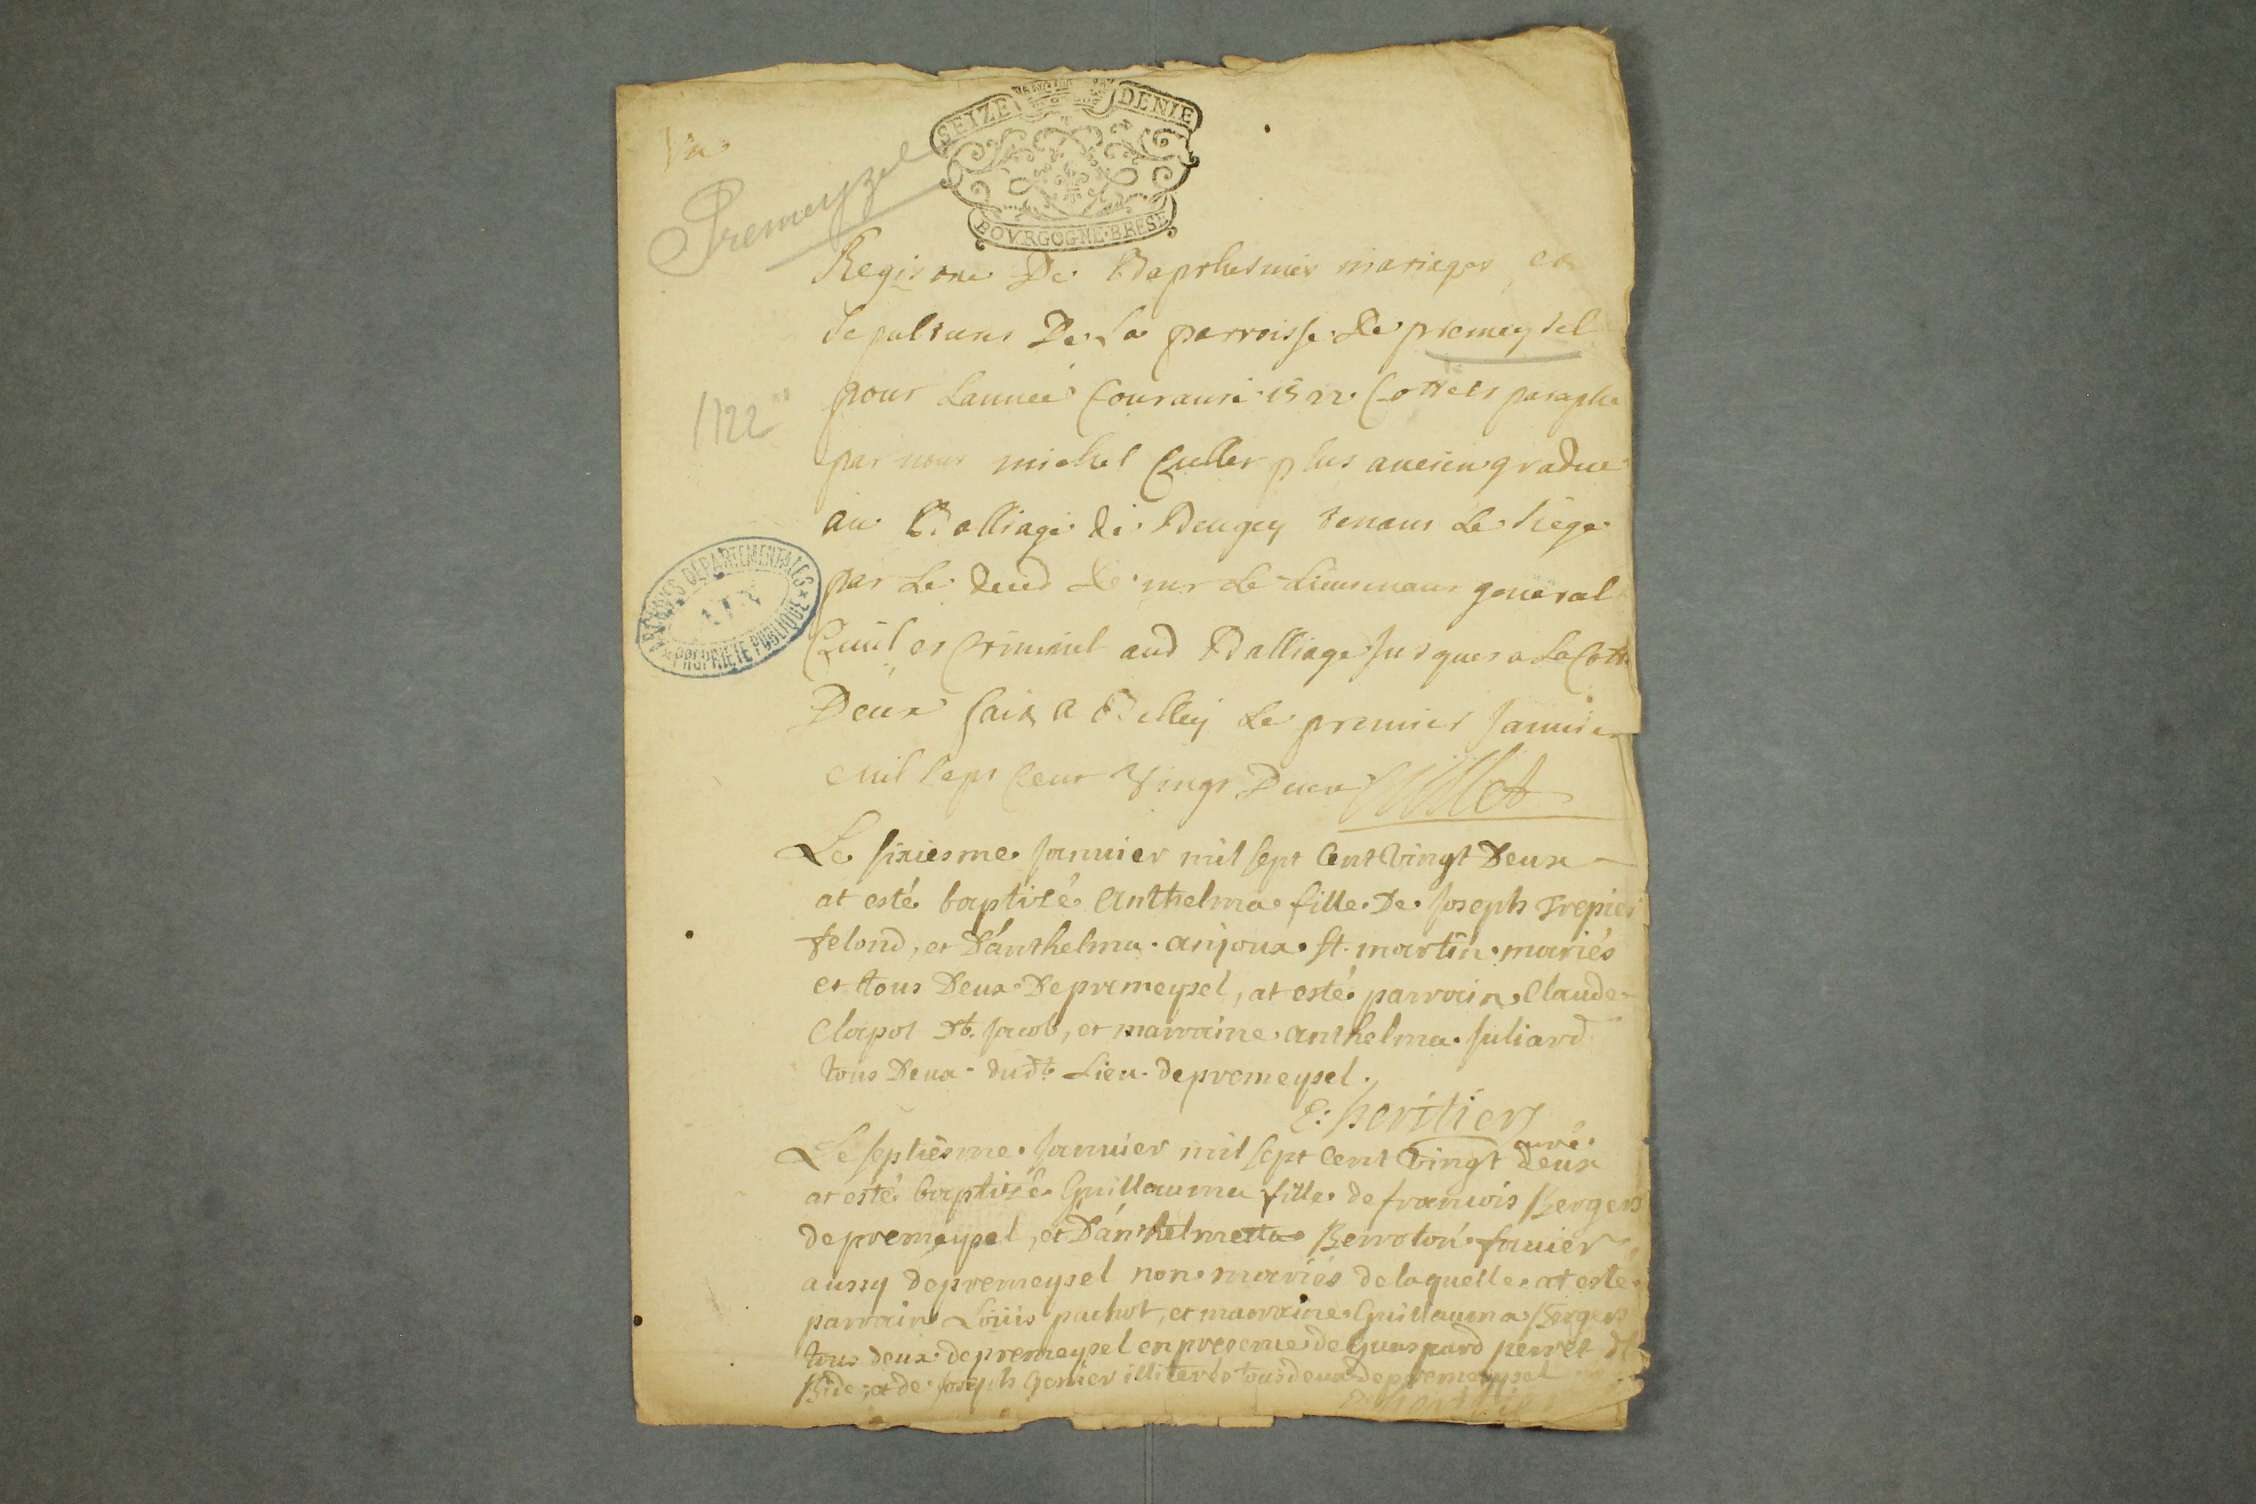 SEIZE DENIE
BOVRGOGNE·BRESE
Premeyzel
1722
ARCHIVES DÉPARTEMENTALES
AIN
PROPRIÉTÉ PUBLIQUE
Registre De Bapthesmes mariages et
sepultures De La parroisse de premeysel
pour Lannée Courante 1722 Cottets paraphe
par nous michel Cullet plus ancien gradue
au Balliage de Beugey tenant Le siege
par Le deces de mr Le Lieutenant general
Civil et Criminel aud Balliage jusques a La Cotte
Deux fait a Belley Le premier janvier
mil sept Cent Vingt Deux Cullet
Le sixiesme janvier mil sept Cent Vingt Deux
at esté baptizé Anthelma fille De Joseph Trepier
felond, et D'anthelma anjoux St. martin mariés
et tous Deux De premeysel, at esté parrain Claude
Clapot dt. Jacob, et marraine anthelma Juliard
tous Deux dudt. Lieu de premeysel.
E: heritier
curé
Le septiesme Janvier mil sept Cent Vingt deux
at esté baptizé Guillauma fille de francois Berger
de premeysel, et D'anthelmetta Berroton favier
aussy de premeysel non mariés de laquelle at esté
parrain Loüis puchot, et marraine Guillauma Berger
tous deux de premeysel en presence de Guaspard perret dt
Bide, et de Joseph Genier illiterés tous deux de premeysel
E: heritier